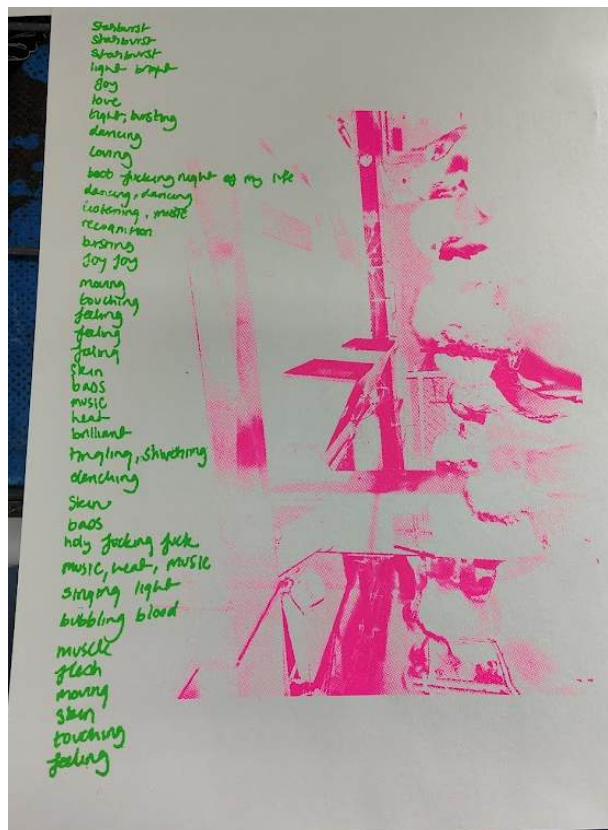 Starburst
Starburst
Starburst
light bright
Joy
love
light, bursting
dancing
loving
best fucking night of my life
dancing, dancing
listening, music
recognition
bursting
Joy Joy
moving
touching
feeling
feeling
falling
Skin
bass
music
heat
brilliant
tingling,
clenching
Skin
bass
holy fucking fuck
music, heat, music
singing light
bubbling blood
muscle
flesh
moving
skin
touching
feeling